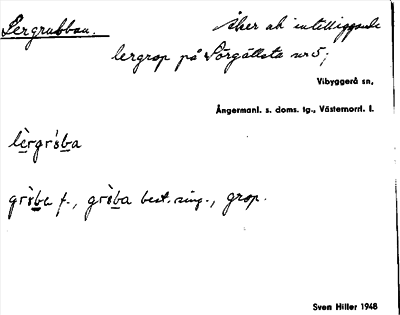 Lergrubban. åker vid intilliggande
lergrop på Sörgällsta nr 5;
Vibyggerå sn,
Ångermanl. s. doms. tg., Västernorrl. l.
lèrgròba
gròba f., gròba best. sing., grop.
Sven Hiller 1948